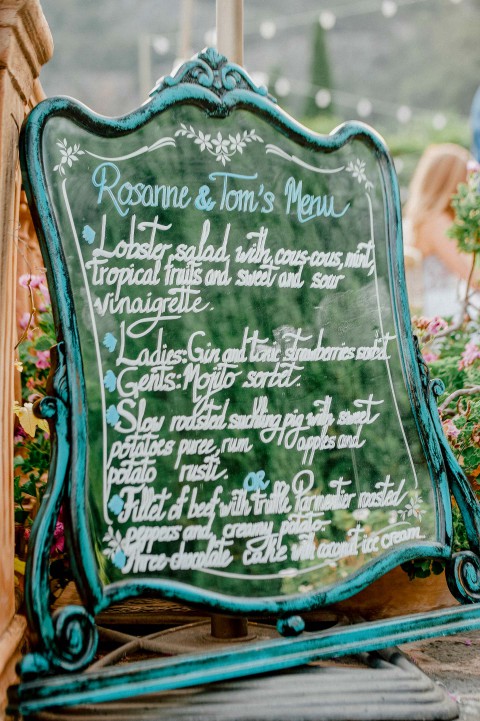 Rosanne & Tom's Menu
Lobster salad with cous-cous, mint,
tropical fruits and sweet and sour
vinaigrette.
Ladies: Gin and tonic strawberries sorbet
Gents: Mojito sorbet.
Slow roasted suckling pig with sweet
potatoes puree, rum apples and
potato rusti.
OR
Fillet of beef with truffle Parmentier roasted
peppers and creamy potato.
Three-chocolate cake with coconut ice cream.